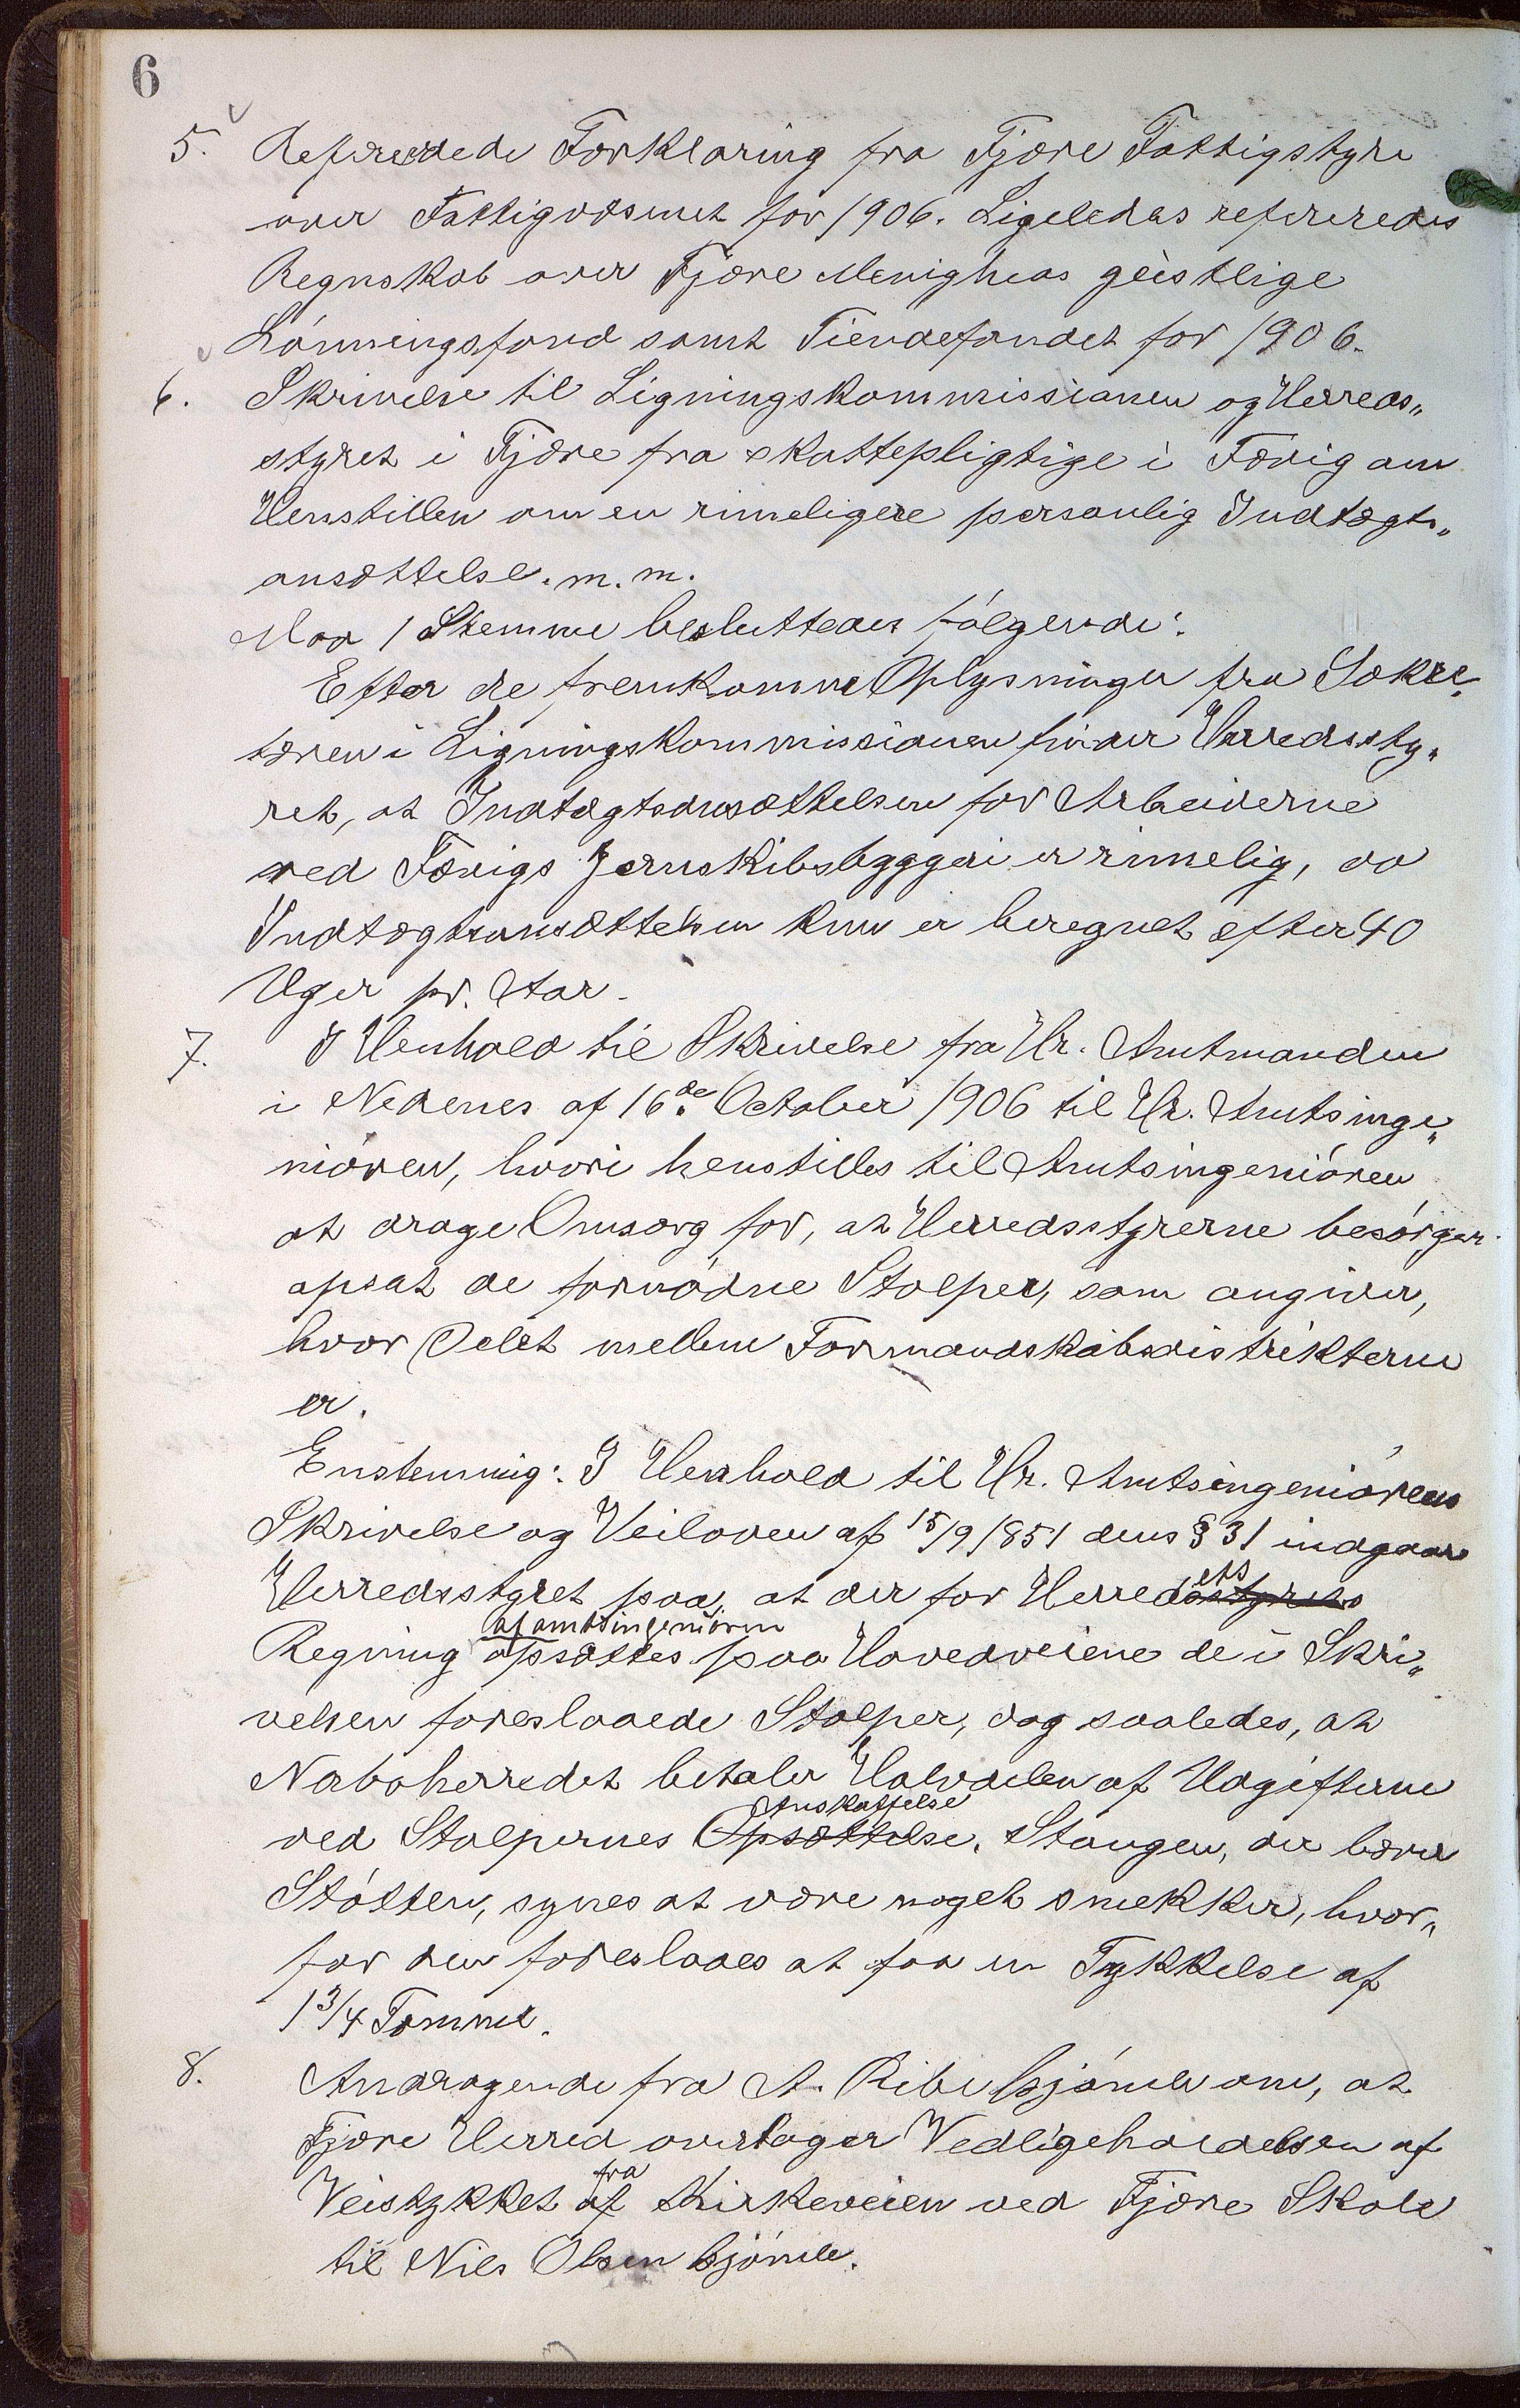 6
5. Refereredes Forklaring fra Fjære Fattigstyre
over Fattigvæsenet for 1906. Ligeledes refereredes
Regnskab over Fjære Menigheds geistlige
Lønningsfond samt Tiendefondet for 1906.
6. Skrivelse til Ligningskommissionen og Herreds„
styret i Fjære fra skattepligtige i Fævig om
Henstillen om en rimeligere personlig Indtægts„
ansættelse. m. m.
Mod 1 Stemme besluttedes følgende:
Efter de fremkomne Oplysninger fra Sekre„
tæren i Ligningskommissionen finder Herredssty„
ret, at Indtægtsansættelsen for Arbeiderne
ved Fævigs Jernskibsbyggeri er rimelig, da
Indtægtsansættelsen kun er beregnet efter 40
Uger pr. Aar.
7. I Henhold til Skrivelse fra Hr. Amtmanden
i Nedenes af 16de October 1906 til Hr. Amtsinge„
niøren, hvori henstilles til Amtsingeniøren
at drage Omsorg for, at Herredsstyrerne besørger
opsat de fornødne Stolper, som angiver,
hvor Delet mellem Formandskabsdistrikterne
er.
Enstemmig: I Henhold til Hr. Amtsingeniørens
Skrivelse og Veiloven af 15/9 1851 dens § 31 indgaar
Herredsstyret paa, at der for Herredsstyrets ets
Regning af amtsingeniøren opsættes paa Hovedveiene de i Skri„
velsen foreslaaede Stolper, dog saaledes, at
Naboherredet betaler Halvdelen af Udgifterne
ved Stolpernes Opsættelse Anskaffelse. Stangen, der bærer
Støtten, synes at være noget smekker, hvor„
for den foreslaaes at faa en Tykkelse af
1 3/4 Tomme.
8. Andragende fra A. Ribe Bjønnes om, at
Fjære Herred overtager Vedligeholdelsen af
Veistykket af fra Kirkeveien ved Fjære Skole
til Nils Olsen Bjønnes.